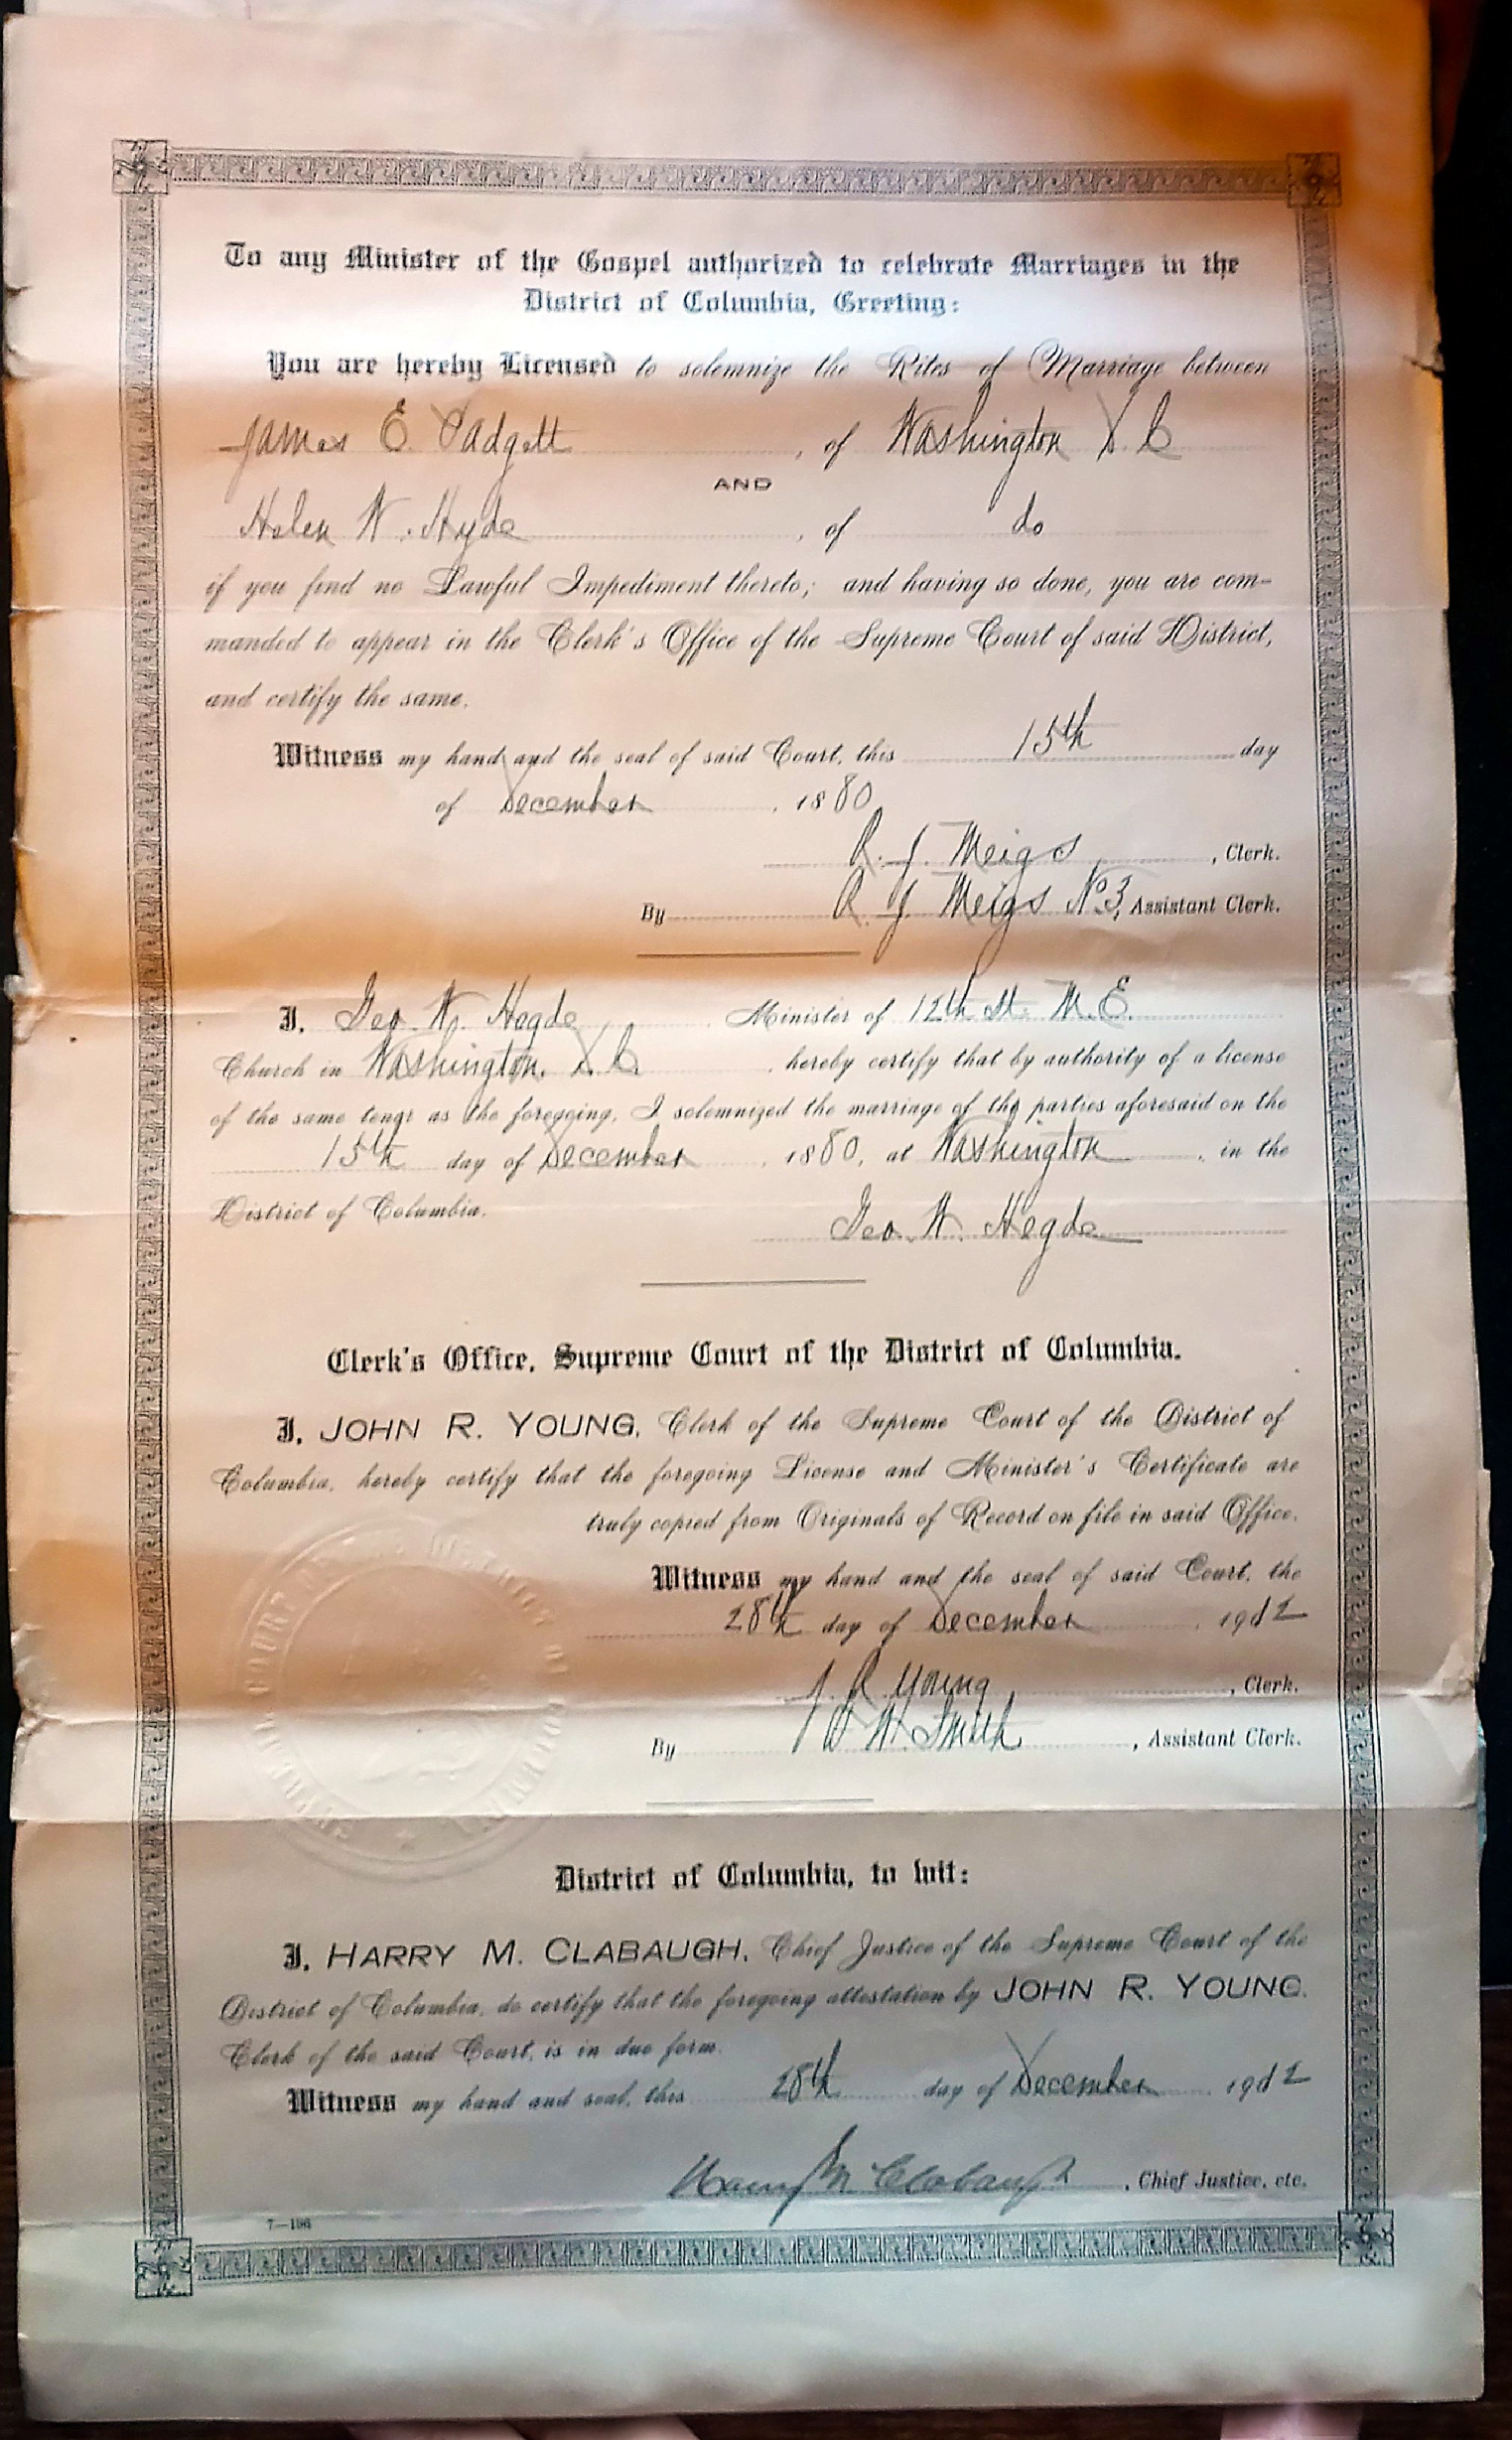 To any Minister of the Gospel authorized to celebrate Marriages in the
District of Columbia, Greeting:
You are hereby Licensed to solemnize the Rites of Marriage between
James E. Padgett, of Washington D.C
AND
Helen W. Hyde, of do
if you find no Lawful Impediment thereto; and having so done, you are com-
manded to appear in the Clerk's Office of the Supreme Court of said District,
and certify the same.
Witness my hand and the seal of said Court, this 15th day
of December, 1880
R. J. Meigs, Clerk.
By R J. Meigs No 3, Assistant Clerk.
I, Geo. W. Hogde Minister of 12th St. M.E.
Church in Washington, D.C., hereby certify that by authority of a license
of the same tenor as the foregoing, I solemnized the marriage of the parties aforesaid on the
15th day of December, 1880, at Washington, in the
District of Columbia.
Geo. W. Hogde
Clerk's Office, Supreme Court of the District of Columbia.
I, JOHN R. YOUNG, Clerk of the Supreme Court of the District of
Columbia, hereby certify that the foregoing License and Minister's Certificate are
truly copied from Originals of Record on file in said Office.
Witness my hand and the seal of said Court, the
28th day of December, 19
J. R. Young, Clerk.
By W. Smith, Assistant Clerk.
SUPREME COURT OF THE DISTRICT OF COLUMBIA
District of Columbia, to wit:
I, HARRY M. CLABAUGH, Chief Justice of the Supreme Court of the
District of Columbia, do certify that the foregoing attestation by JOHN R. YOUNG,
Clerk of the said Court, is in due form.
Witness my hand and seal, this 28th day of December, 19
Harry M Clabaugh, Chief Justice, etc.
7—196